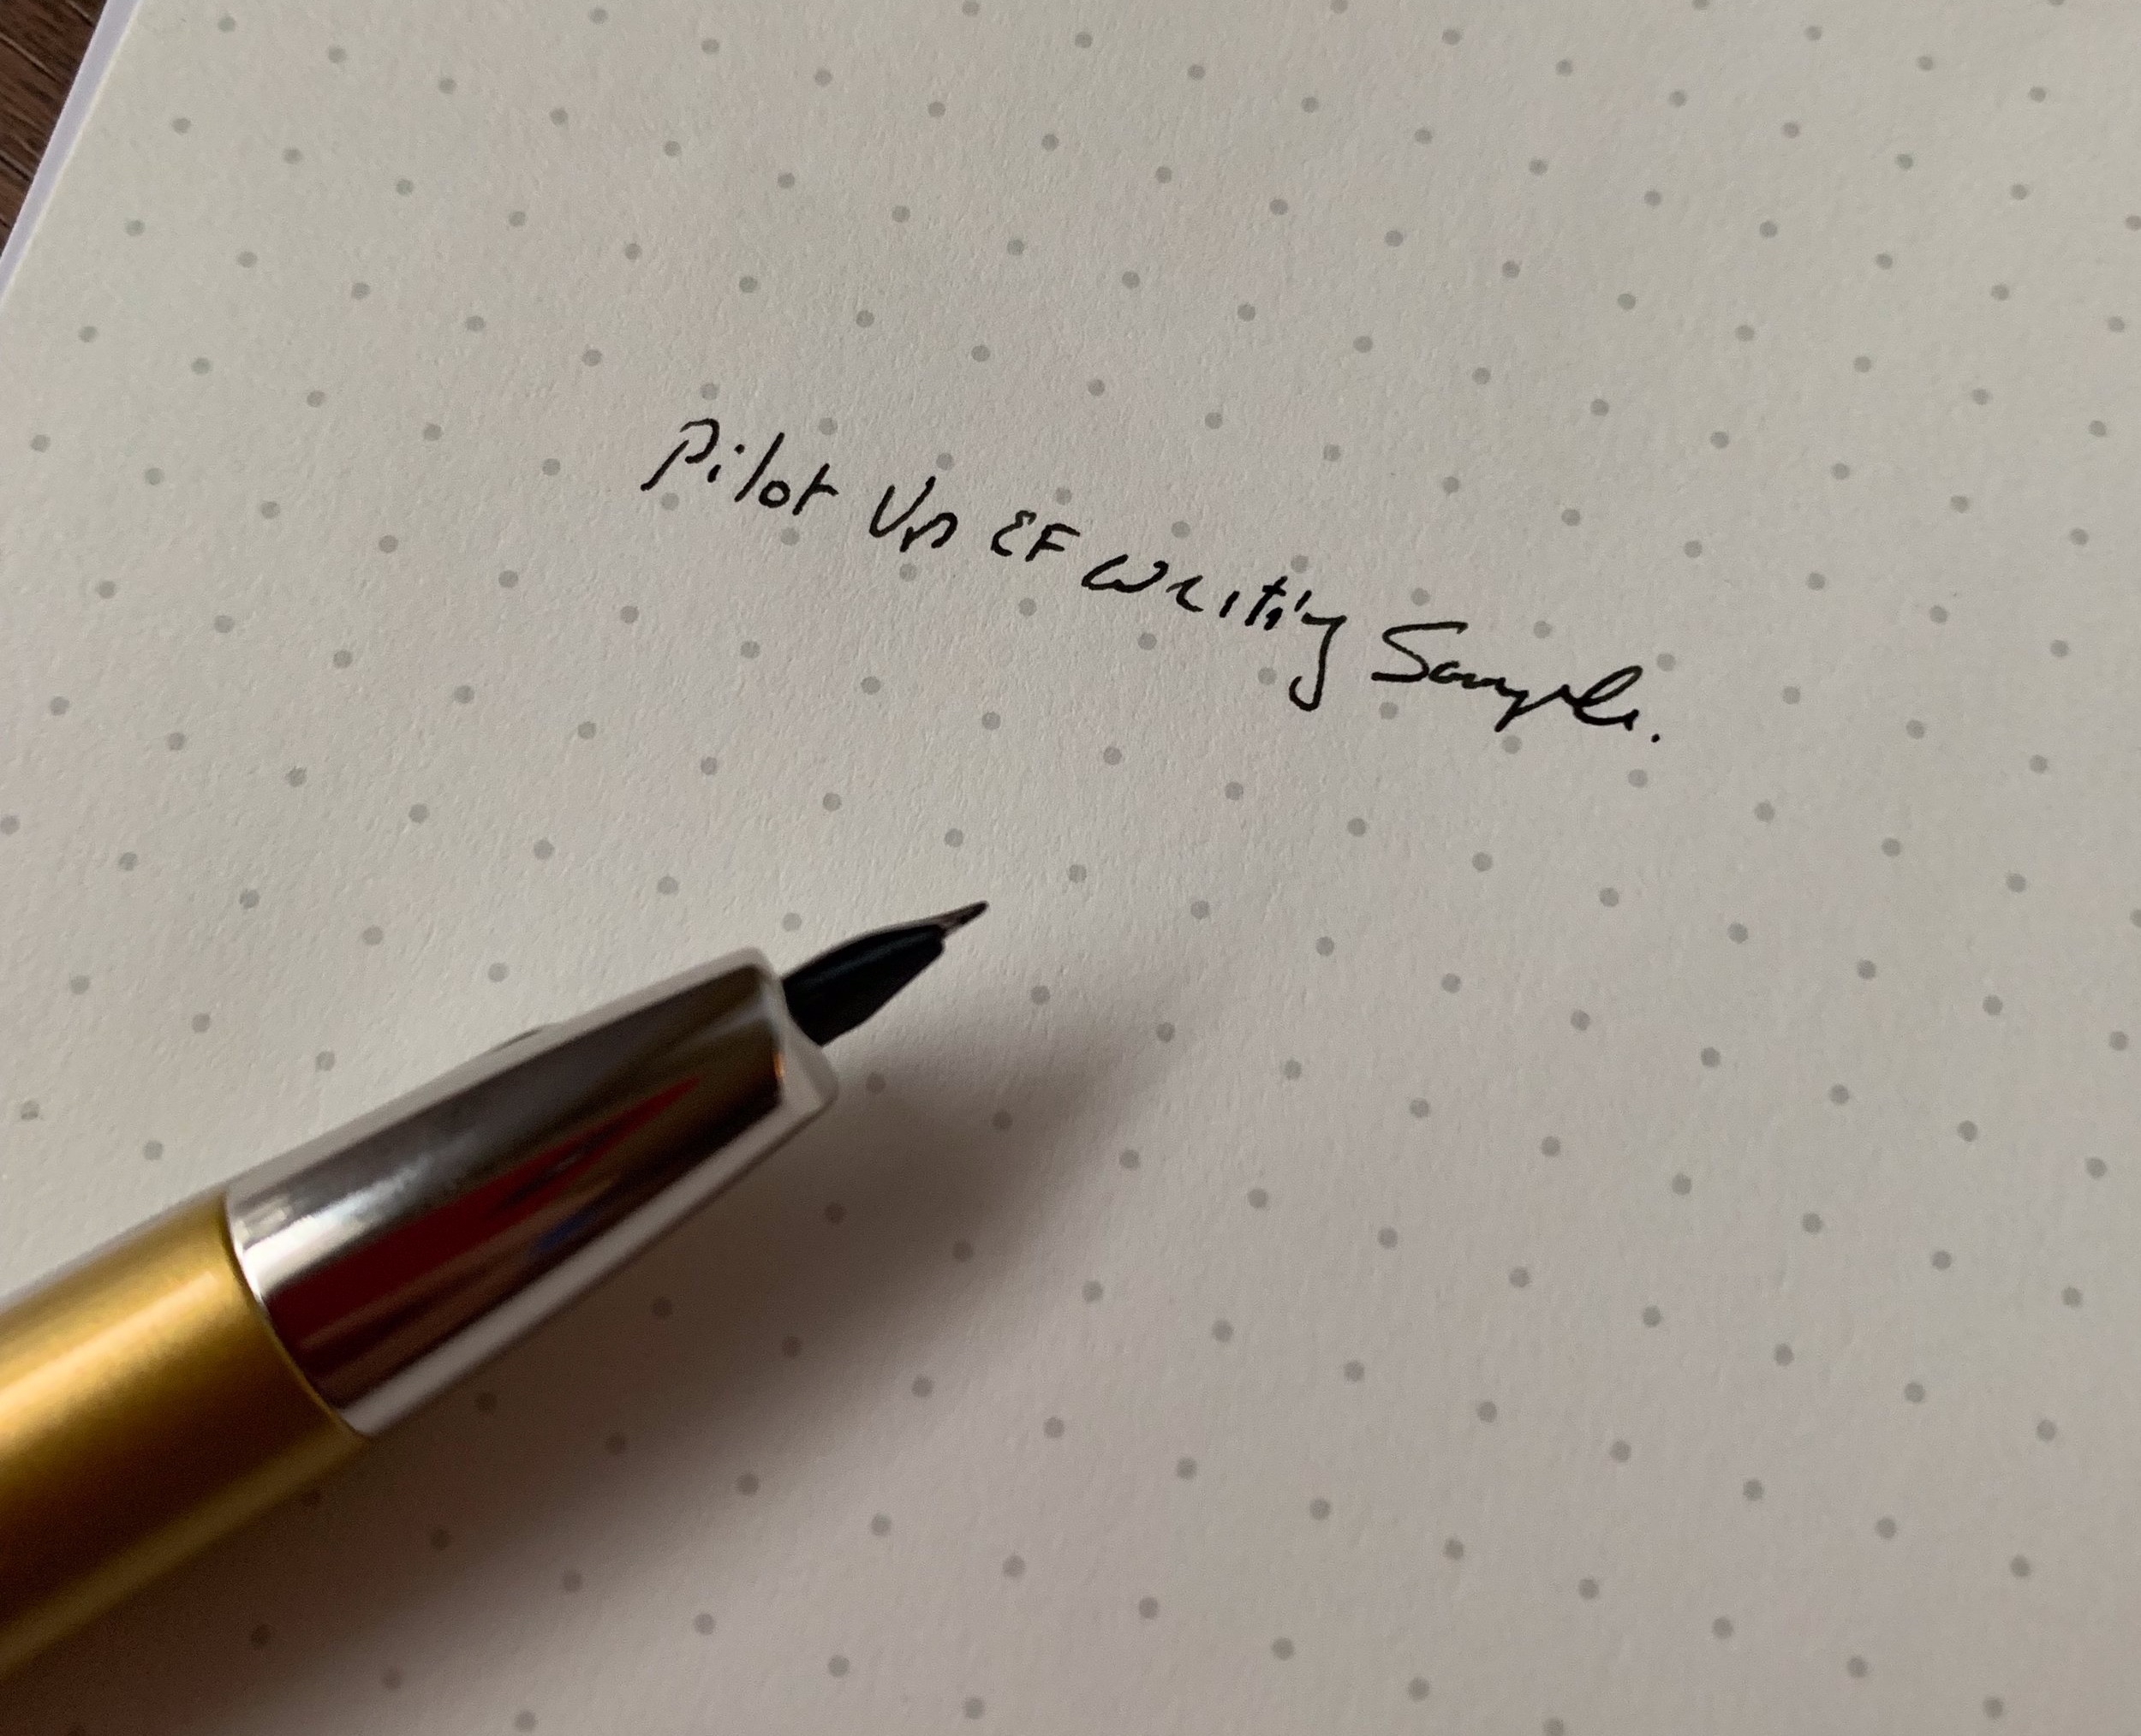 Pilot VP EF writing Sample.